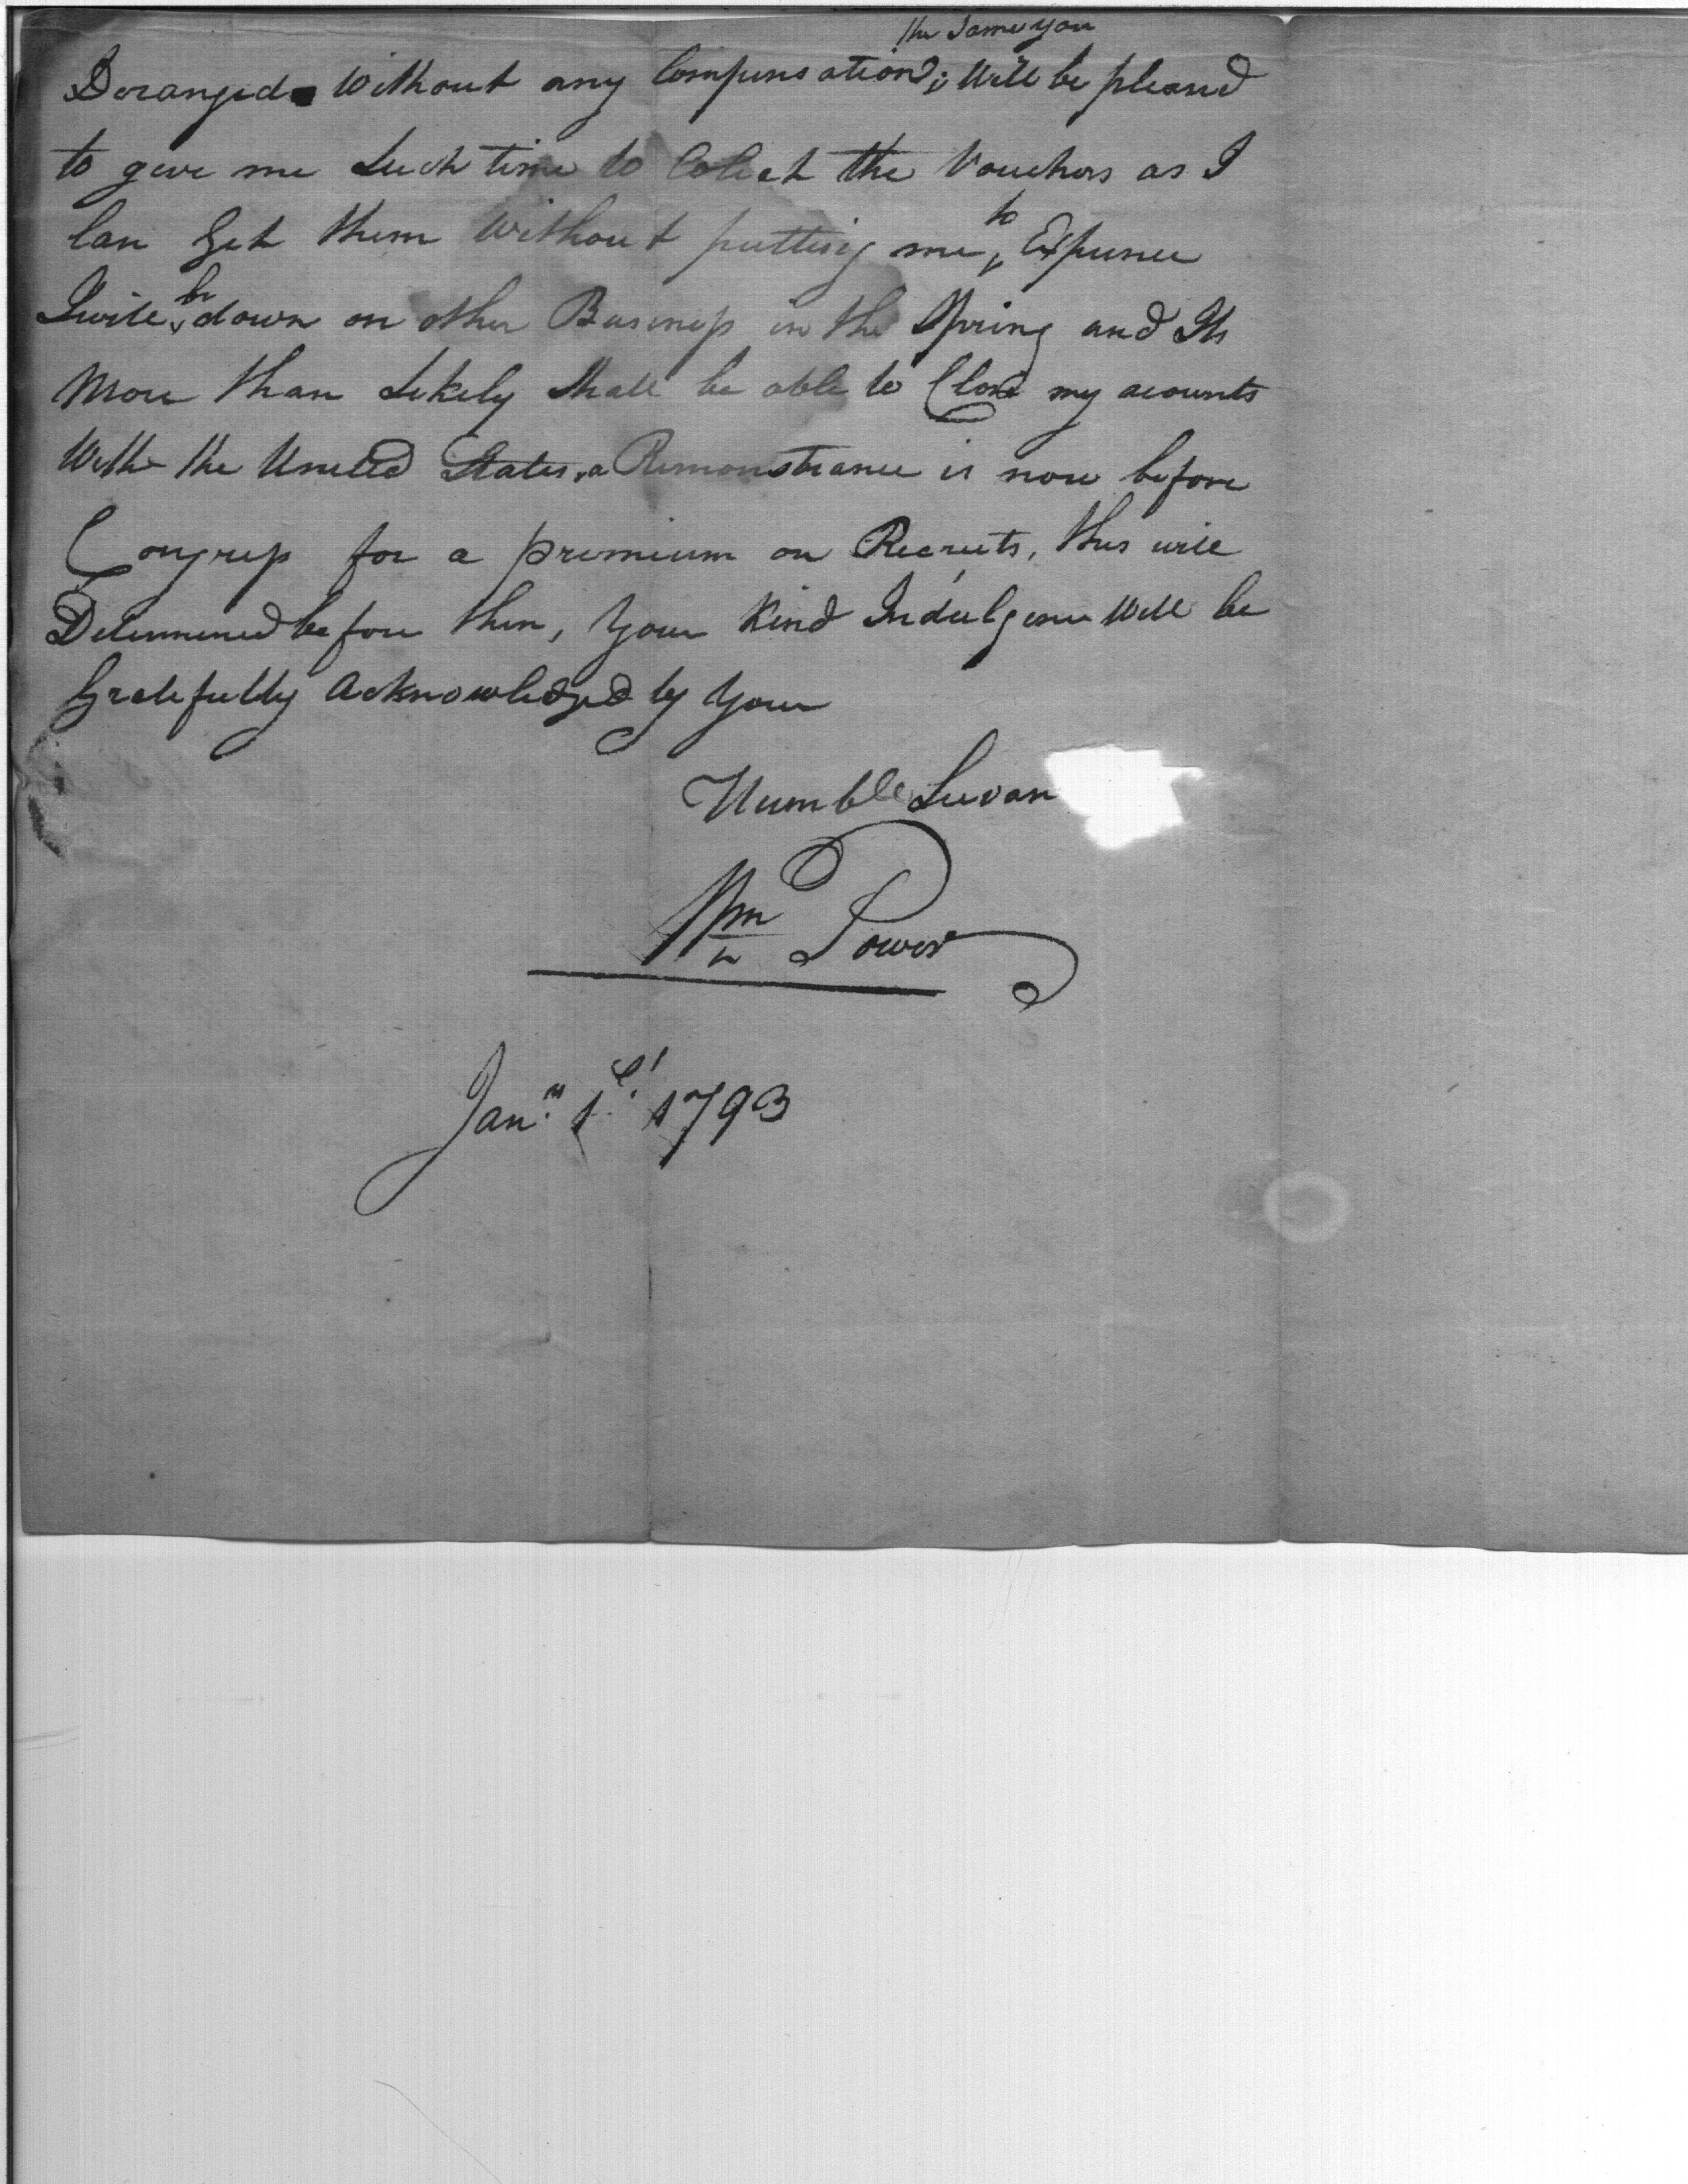 the Same you
Deranged Without any Compensation; Will be pleased
to give me Such time to Colect the Vouchers as I
Can Get them Without putting me to Expence
I will be down on other Business in the Spring and Its
More than Likely Shall be able to Close my acounts
With the United States, a Remonstrance is now before
Congress for a premium on Recruits, this will
Determined before then, Your Kind Indulgence Will be
Gratefully Acknowledged by Your
Humble Servan
Wm Power
Jany. 1st. 1793